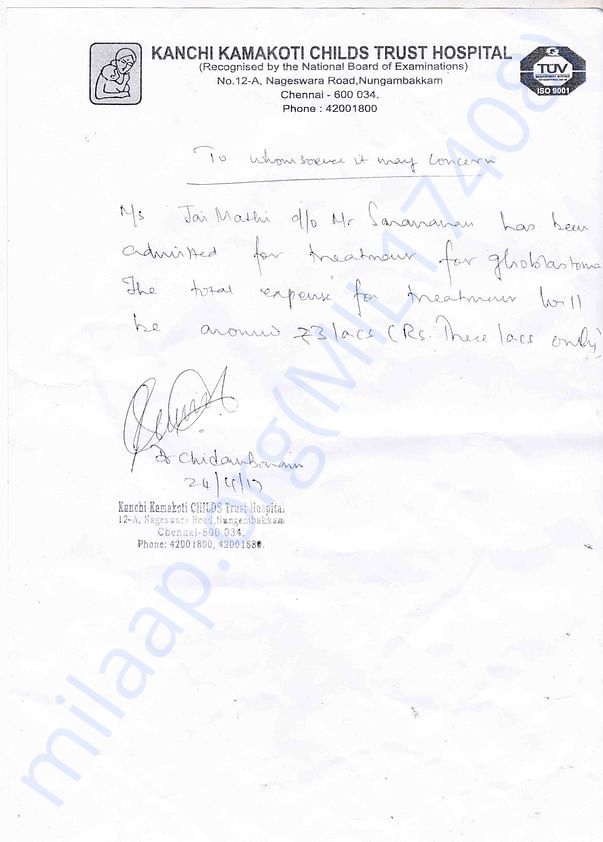 KANCHI KAMAKOTI CHILDS TRUST HOSPITAL
(Recognised by the National Board of Examinations)
No.12-A, Nageswara Road,Nungambakkam
Chennai - 600 034.
Phone : 42001800
TÜV
ISO 9001
To whomsoever it may concern
M/s Jai Mathi d/o Mr Saravanan has been
admitted for treatment for glioblastoma
The total expense for treatment will
be around ₹3 lacs (Rs. Three lacs only)
Dr Chidambaram
24/4/17
Kanchi Kamakoti CHILDS Trust Hospital
12-A, Nageswara Road,Nungambakkam
Chennai-600 034.
Phone: 42001800, 4200188
milaap.org(MIL174089)